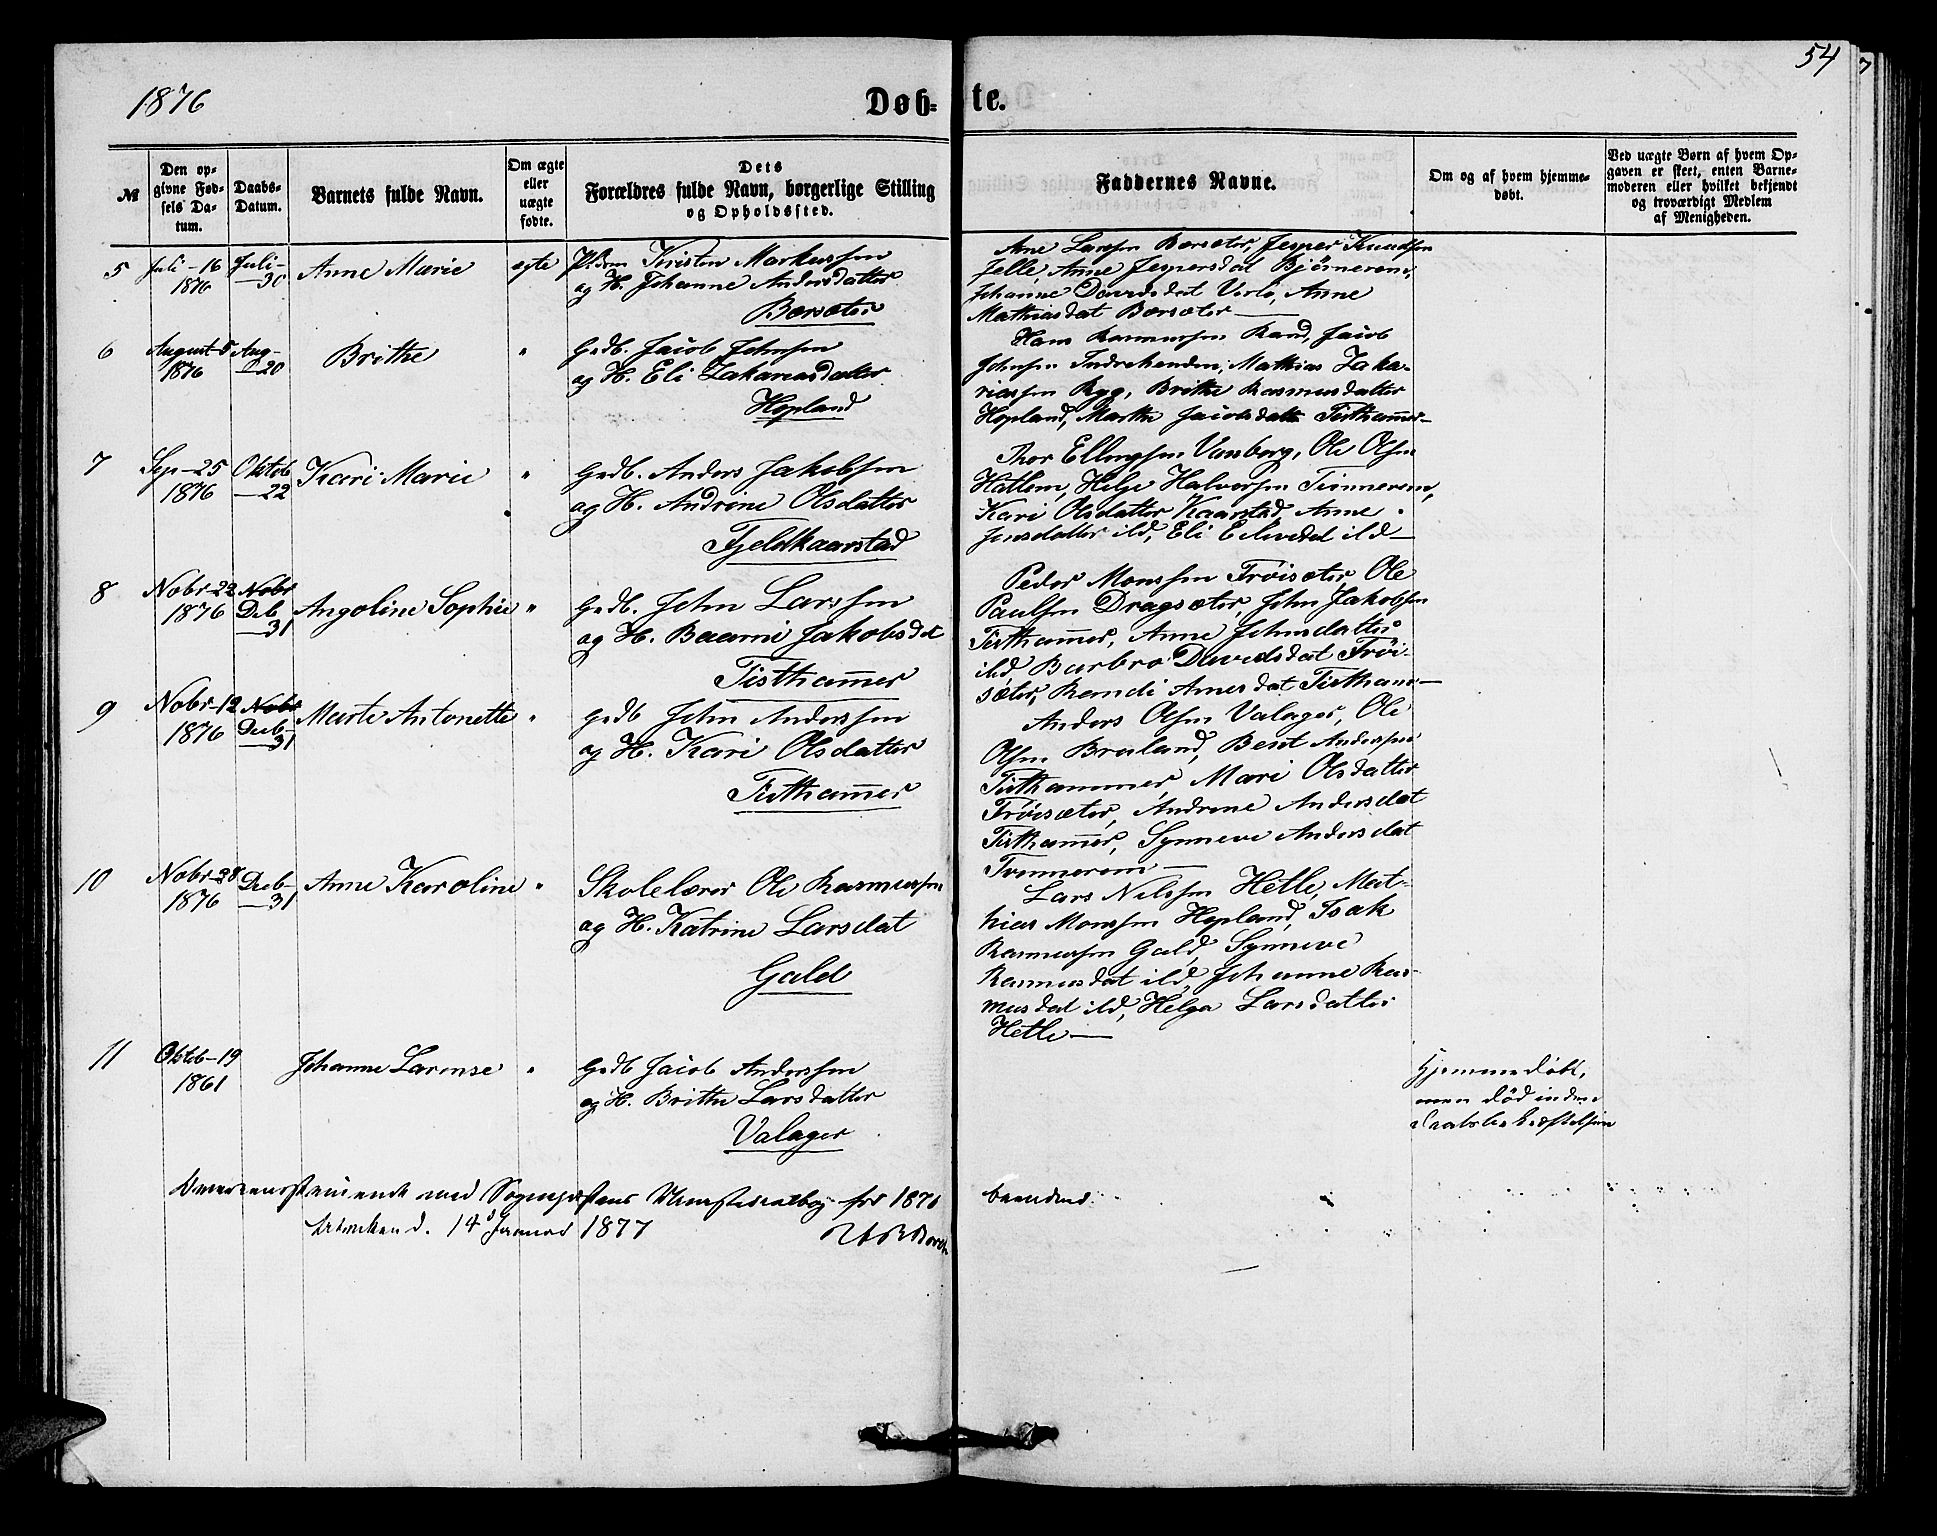 54
7
1876
Døb-
te.
№
Den op-
givne Fød-
sels Da-
tum.
Daabs-
Datum.
Barnets fulde Navn.
Om ægte
eller
uægte
fødte.
Dets
Forældres fulde Navn, borgerlige Stilling
og Opholdssted.
Faddernes Navne.
Om og af hvem hjemme-
døbt.
Ved uægte Børn af hvem Op-
gaven er skeet, enten Barne-
moderen eller hvilket bekjendt
og troværdigt Medlem
af Menigheden.
5
Juli - 16
1876
Juli -
- 30
Anne Marie
ægte
Kristen Markussen
og H. Johanne Andersdatter
Borsæter
Arne Larsen Borsæter, Jesper Knudsen
Jelle, Anne Jespersdat Bjørnerem,
Johanne Davidsdat Verlo, Anne
Mathiasdat Borsæter —
6
August - 5
1876
Aug -
- 20
Brithe
"
Grdb. Jacob Johnsen
og H. Eli Zakariasdatter
Hopland
Hans Rasmussen Rand, Jacob
Johnsen Indrehenden, Mathias Zaka-
riassen Ryg, Brithe Rasmusdatter
Hopland, Marthe Jacobsdatt Tisthamer —
7
Sep - 25
1876
Oktob
- 22
Kari Marie
"
Grdb. Anders Jakobsen
og H. Andrine Olsdatter
Fjeldkaarstad
Thor Ellingsen Vansberg, Ole Olsen
Hatlem, Helge Halvorsen Tennerem,
Kari Olsdatter Kaarstad, Anne
Jensdatter ild, Eli Eilevsdat ild —
8
Nobr - 22
1876
Nobr
Deb
- 31
Angoline Sophie
"
Grdb. John Larssen
og H. Baarni Jakobsdat
Tisthammer
Peder Monssen Trøisæter, Ole
Paulsen Dragsæter, John Jakobsen
Tisthammer, Anne Johnsdatter
ild, Barbro Davidsdat Trøi-
sæter, Randi Arnesdat Tistham —
9
Nobr - 12
1876
Nobr
Deeb -
- 31
Marte Antonette
"
Grdb John Anderssen
og H. Kari Olsdatter
Tisthammer
Anders Olsen Valager, Ole
Olsen Braland, Bent Anderssen
Tisthammer, Mari Olsdatter
Trøisæter, Andrine Andersdat
Tisthammer, Synneve Andersdat
Tennerem —
10
Nobr - 28
1876
Deeb -
- 31
Anne Karoline
"
Skolelærer Ole Rasmussen
og H. Katrine Larsdat
Gald
Lars Nilssen Hetle, Mat-
hias Monssen Hopland, Isak
Rasmussen Gald, Synneve
Rasmusdat ild, Johanne Ras-
musdat ild, Helga Larsdatter
Hetle —
11
Oktob - 19
1861
Johanne Larense
"
Grdb Jacob Anderssen
og H. Brithe Larsdatter
Valager
Hjemmedøbt,
men død inden
Daabsbekræftelsen
Overensstemmende med Sognepræstens Ministerialbog for 1876
befunden d. 14 Januar 1877